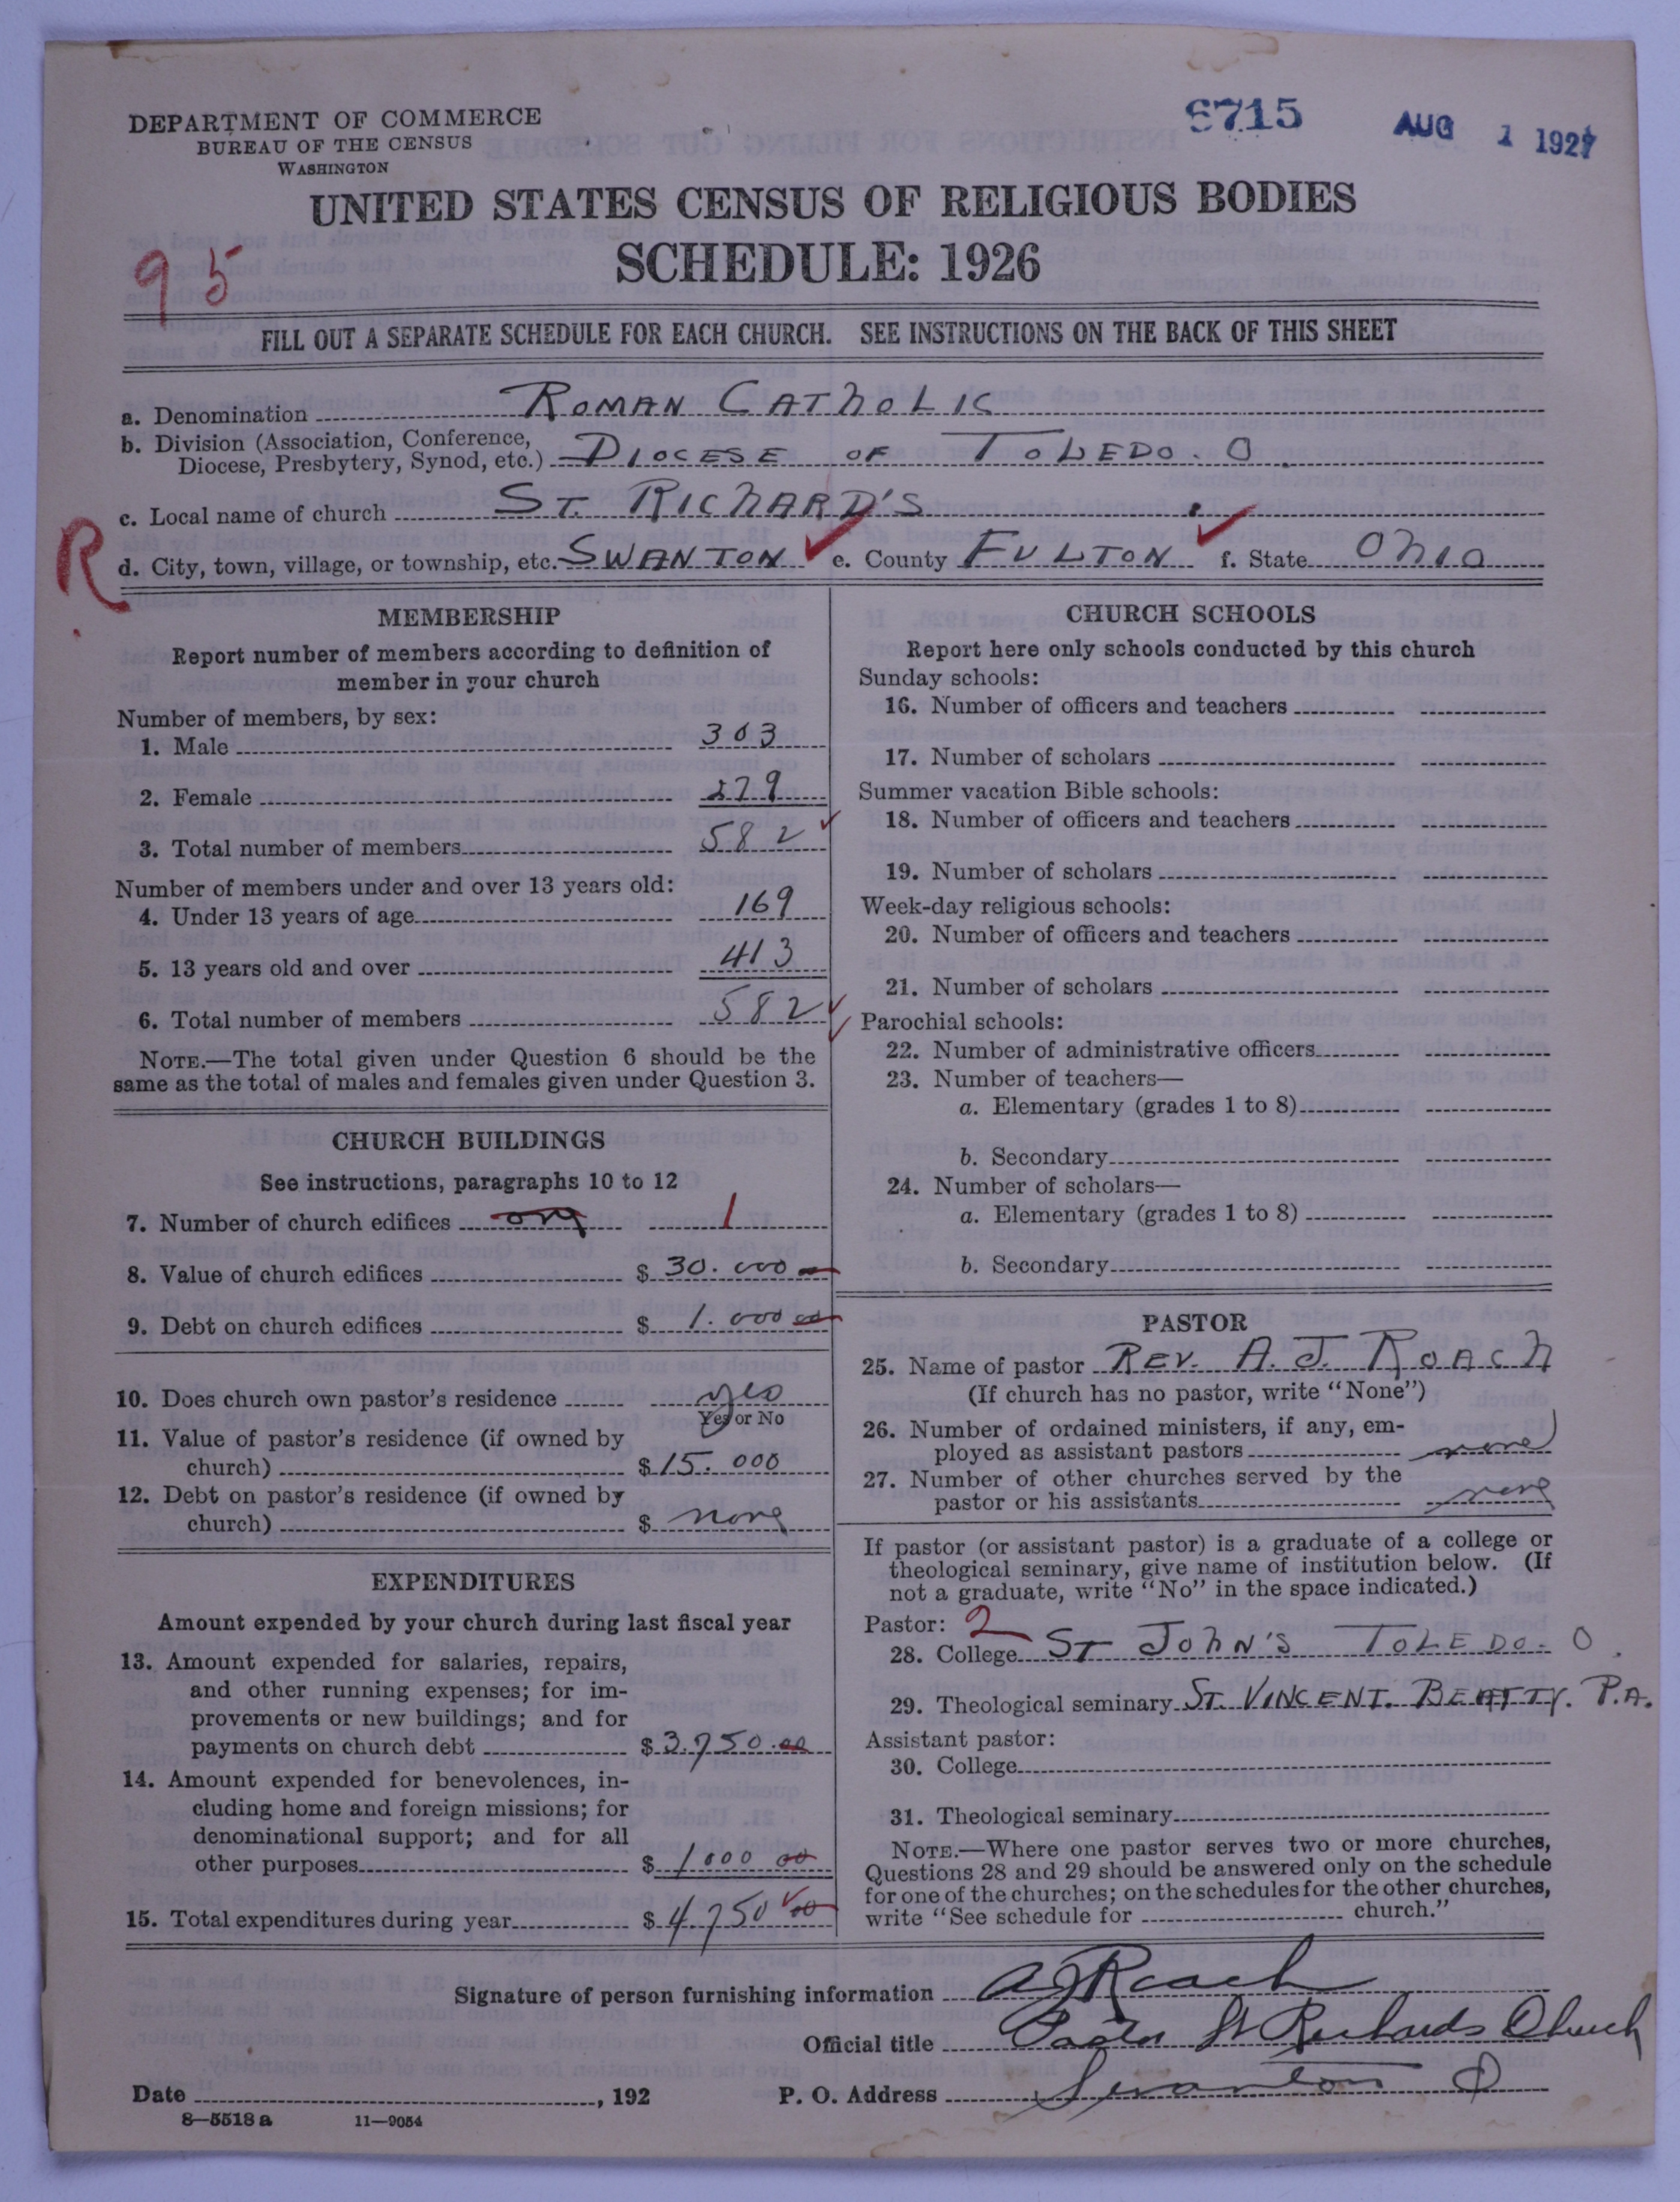 DEPARTMENT OF COMMERCE
BUREAU OF THE CENSUS
WASHINGTON
6715
AUG 1 1927
UNITED STATES CENSUS OF RELIGIOUS BODIES
SCHEDULE: 1926
95
FILL OUT A SEPARATE SCHEDULE FOR EACH CHURCH. SEE INSTRUCTIONS ON THE BACK OF THIS SHEET
a. Denomination ROMAN CATHOLIC
b. Division (Association, Conference,
Diocese, Presbytery, Synod, etc.) DIOCESE OF TOLEDO. O
c. Local name of church ST. RICHARD'S
R
d. City, town, village, or township, etc. SWANTON e. County FULTON f. State OHIO
MEMBERSHIP
Report number of members according to definition of
member in your church
Number of members, by sex:
1. Male 303
2. Female 279
3. Total number of members 582
Number of members under and over 13 years old:
4. Under 13 years of age 169
5. 13 years old and over 413
6. Total number of members 582
NOTE.—The total given under Question 6 should be the
same as the total of males and females given under Question 3.
CHURCH BUILDINGS
See instructions, paragraphs 10 to 12
7. Number of church edifices one 1
8. Value of church edifices $ 30.000
9. Debt on church edifices $ 1.000 00
10. Does church own pastor's residence yes
Yes or No
11. Value of pastor's residence (if owned by
church) $ 15.000
12. Debt on pastor's residence (if owned by
church) $ none
EXPENDITURES
Amount expended by your church during last fiscal year
13. Amount expended for salaries, repairs,
and other running expenses; for im-
provements or new buildings; and for
payments on church debt $ 3.750.00
14. Amount expended for benevolences, in-
cluding home and foreign missions; for
denominational support; and for all
other purposes $ 1000 00
15. Total expenditures during year $ 4.750 00
CHURCH SCHOOLS
Report here only schools conducted by this church
Sunday schools:
16. Number of officers and teachers
17. Number of scholars
Summer vacation Bible schools:
18. Number of officers and teachers
19. Number of scholars
Week-day religious schools:
20. Number of officers and teachers
21. Number of scholars
Parochial schools:
22. Number of administrative officers
23. Number of teachers—
a. Elementary (grades 1 to 8)
b. Secondary
24. Number of scholars—
a. Elementary (grades 1 to 8)
b. Secondary
PASTOR
25. Name of pastor REV. A. J. ROACH
(If church has no pastor, write "None")
26. Number of ordained ministers, if any, em-
ployed as assistant pastors none
27. Number of other churches served by the
pastor or his assistants none
If pastor (or assistant pastor) is a graduate of a college or
theological seminary, give name of institution below. (If
not a graduate, write "No" in the space indicated.)
Pastor: 2
28. College ST JOHN'S TOLEDO. O.
29. Theological seminary ST. VINCENT. BEATTY. P.A.
Assistant pastor:
30. College
31. Theological seminary
NOTE.—Where one pastor serves two or more churches,
Questions 28 and 29 should be answered only on the schedule
for one of the churches; on the schedules for the other churches,
write "See schedule for church."
Signature of person furnishing information A J Roach
Official title Pastor St Richards Church
Date , 192 P. O. Address Swanton O
8—5518 a 11—9054